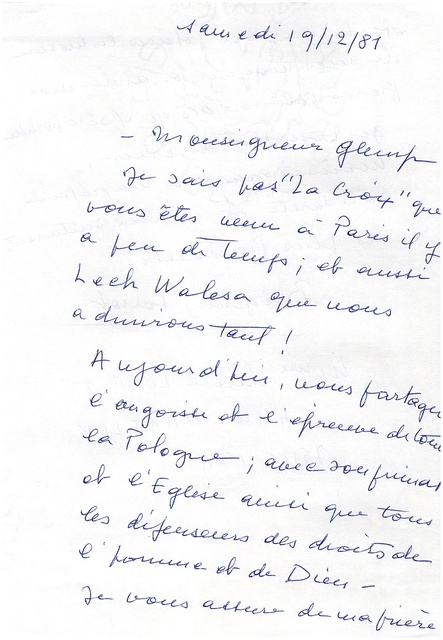 samedi 19/12/81
- Monseigneur Glemp
Je sais par "La Croix" que
vous êtes venu à Paris il y
a peu de temps ; et aussi
Lech Walesa que nous
admirons tant !
Aujourd'hui, nous partageo
l'angoisse et l'épreuve de tou
la Pologne ; avec son primat
et l'Eglise ainsi que tous
les défenseurs des droits de
l'homme et de Dieu -
Je vous assure de ma prière